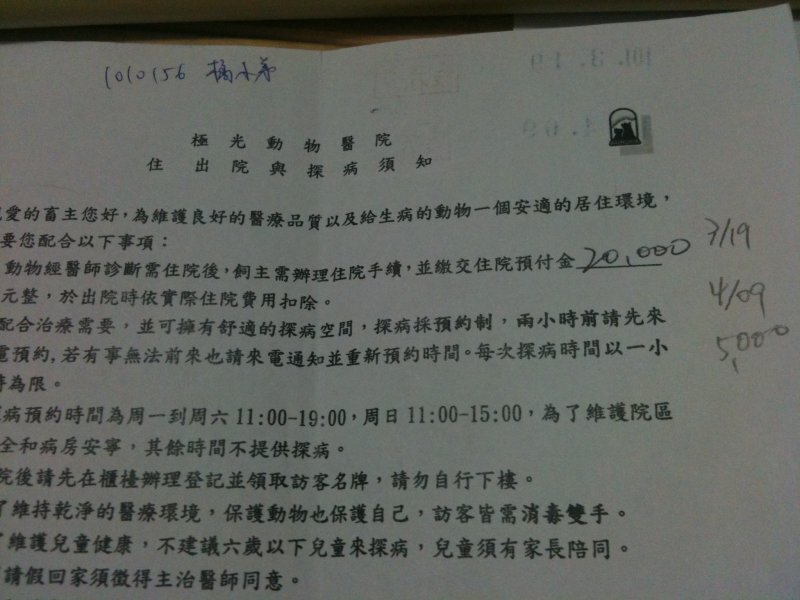 1010156 橘小弟
101. 3. 19
4.09
極光動物醫院
住出院與探病須知
愛的畜主您好，為維護良好的醫療品質以及給生病的動物一個安適的居住環境，
要您配合以下事項：
動物經醫師診斷需住院後，飼主需辦理住院手續，並繳交住院預付金 20,000 3/19
元整，於出院時依實際住院費用扣除。 4/09
配合治療需要，並可擁有舒適的探病空間，探病採預約制，兩小時前請先來 5,000
電預約，若有事無法前來也請來電通知並重新預約時間。每次探病時間以一小
時為限。
病預約時間為周一到周六 11:00-19:00，周日 11:00-15:00，為了維護院區
全和病房安寧，其餘時間不提供探病。
院後請先在櫃檯辦理登記並領取訪客名牌，請勿自行下樓。
了維持乾淨的醫療環境，保護動物也保護自己，訪客皆需消毒雙手。
了維護兒童健康，不建議六歲以下兒童來探病，兒童須有家長陪同。
請假回家須徵得主治醫師同意。